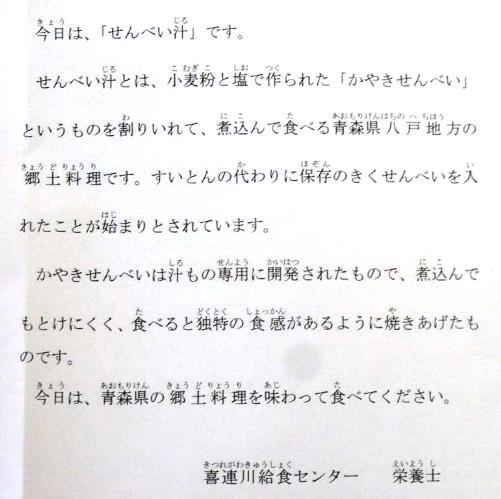 今日は、「せんべい汁」です。
せんべい汁とは、小麦粉と塩で作られた「かやきせんべい」
というものを割りいれて、煮込んで食べる青森県八戸地方の
郷土料理です。すいとんの代わりに保存のきくせんべいを入
れたことが始まりとされています。
かやきせんべいは汁もの専用に開発されたもので、煮込んで
もとけにくく、食べると独特の食感があるように焼きあげたも
のです。
今日は、青森県の郷土料理を味わって食べてください。
喜連川給食センター　栄養士